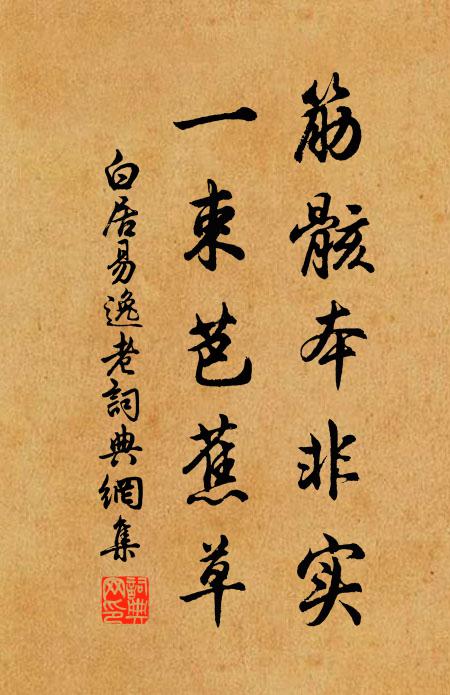 筋骸本非实
一束芭蕉草
白居易逸老詞典網集
詞典
网印